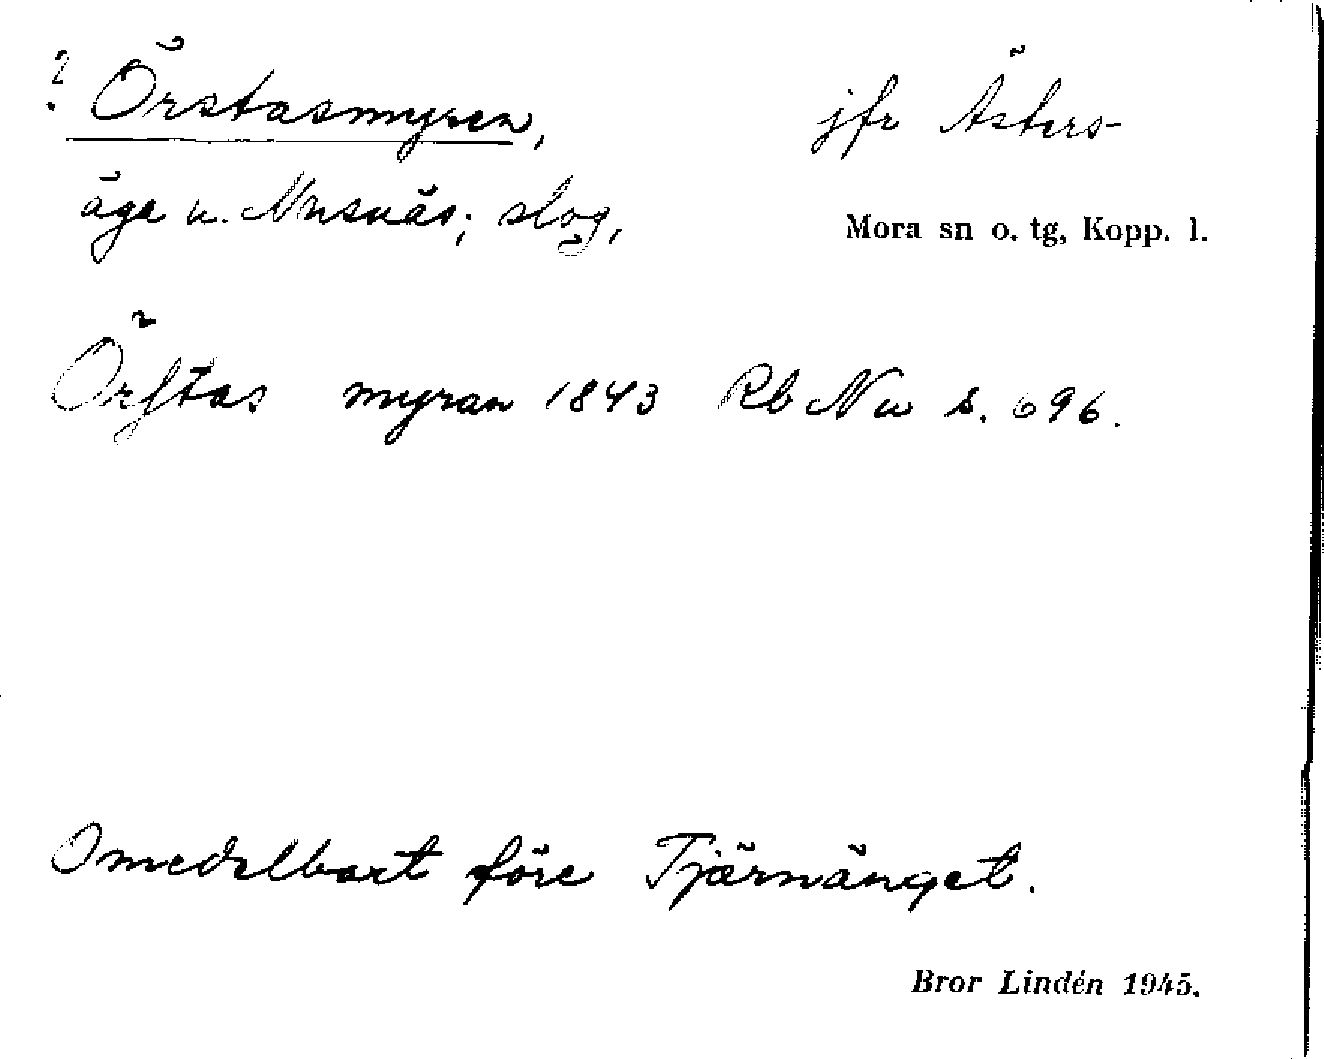 ? Örstasmyren, jfrÄsters-
äga u. Nusnäs; slog, Mora sn o. tg, Kopp. l.
Örstas myran 1843 Rb Nu s. 696.
Omedelbart före Tjärnänget.
Bror Lindén 1945.